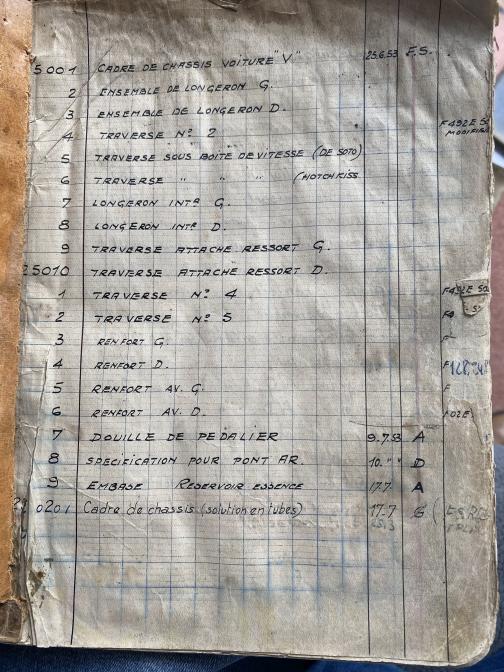 5001 CADRE DE CHASSIS VOITURE "V" 25.6.53 E.S.
2 ENSEMBLE DE LONGERON G.
3 ENSEMBLE DE LONGERON D.
4 TRAVERSE Nº 2 F492E
5 TRAVERSE SOUS BOITE DE VITESSE (DE SOTO)
6 TRAVERSE " " " (HOTCHKISS
7 LONGERON INTR G.
8 LONGERON INTR D.
9 TRAVERSE ATTACHE RESSORT G.
25010 TRAVERSE ATTACHE RESSORT D.
1 TRAVERSE Nº 4 F492E
2 TRAVERSE Nº 5
3 RENFORT G.
4 RENFORT D.
5 RENFORT AV. G. F
6 RENFORT AV. D.
7 DOUILLE DE PEDALIER 9.7.53 A
8 SPECIFICATION POUR PONT AR. 10. " " D
9 EMBASE RESERVOIR ESSENCE 17.7 A
0201 Cadre de chassis (solution en tubes) 17-7 G